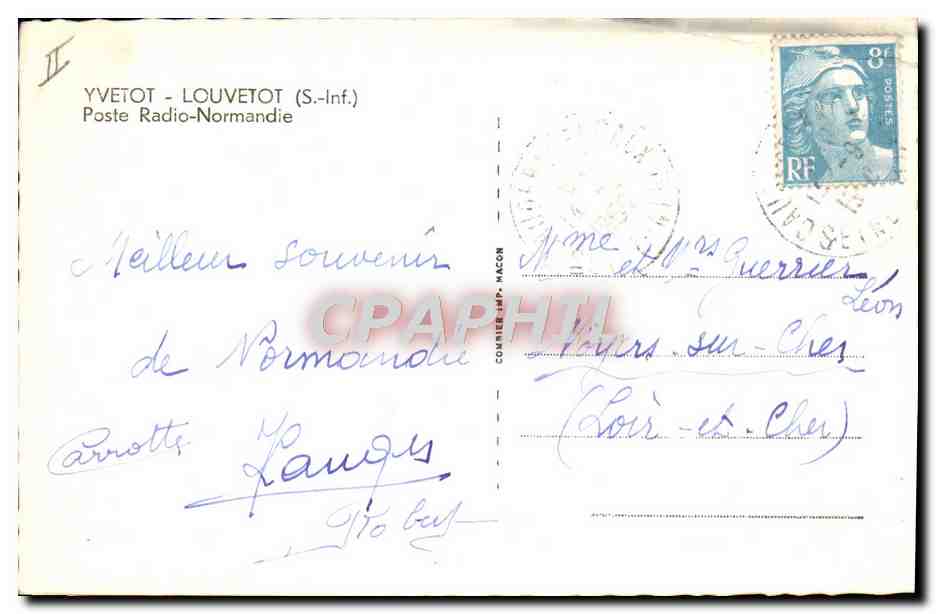 II
YVETOT - LOUVETOT (S.-Inf.)
Poste Radio-Normandie
8F
POSTES
RF
Meilleur souvenir
de Normandie
Carrotte
COMBIER IMP. MACON
Mme et Mrs Guerrier
Léon
Noyers-sur-Cher
(Loir-et-Cher)
CPAPHIL